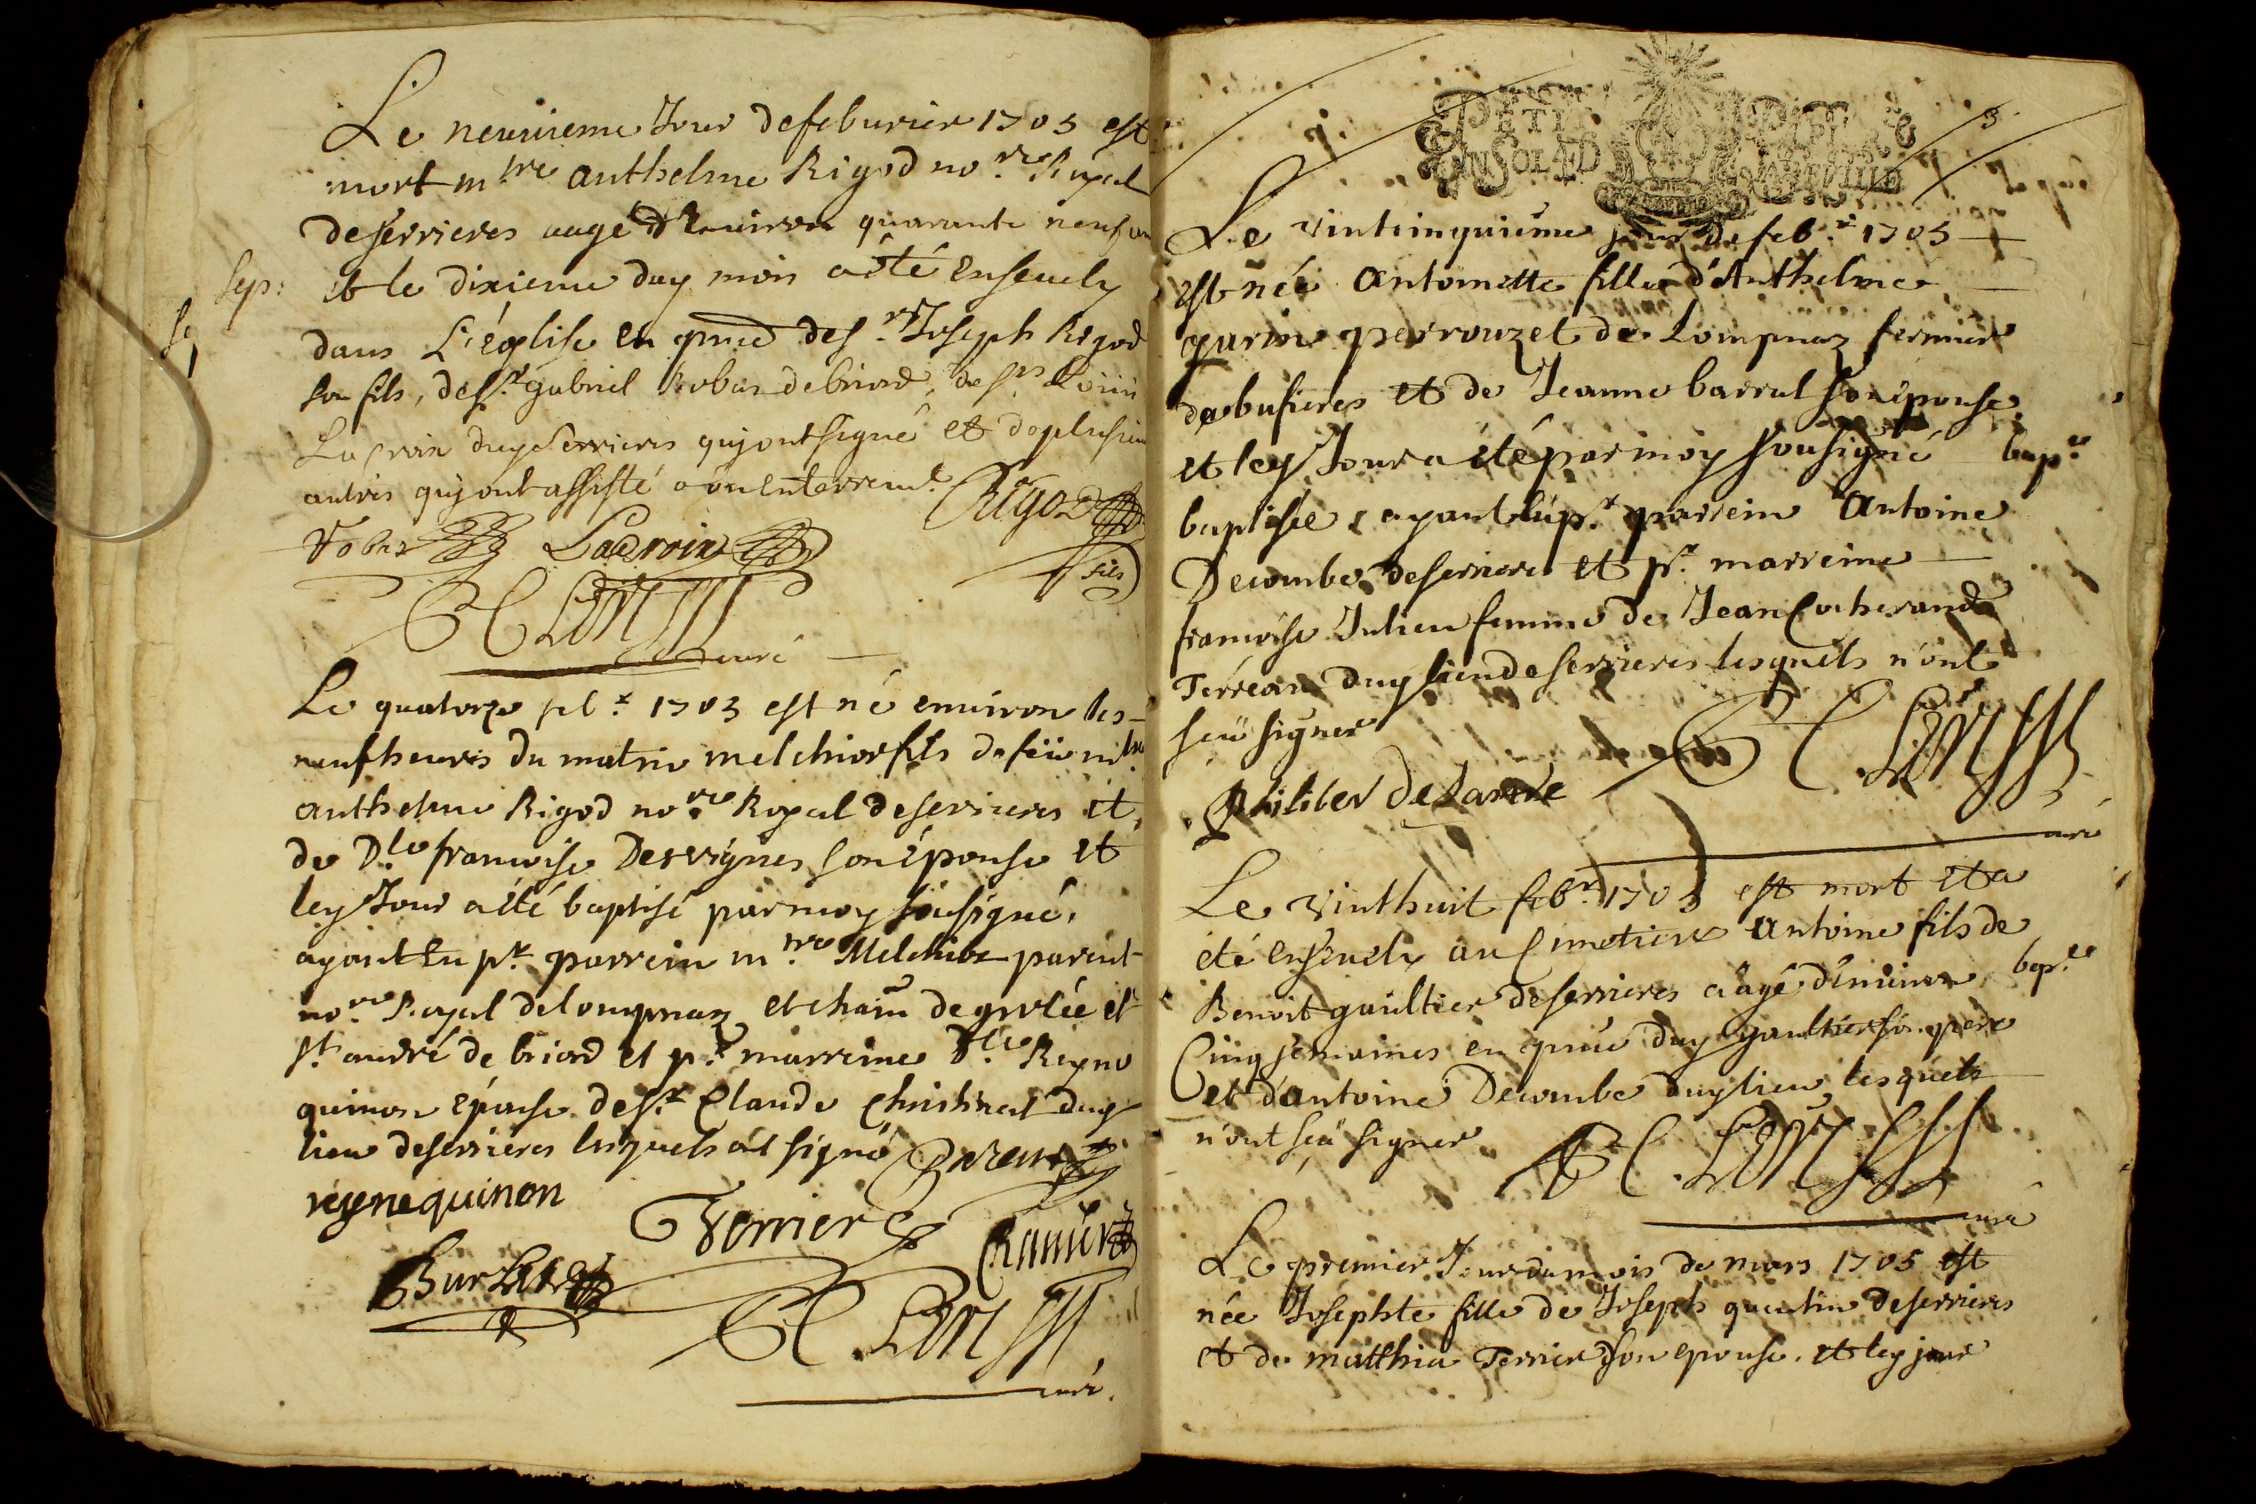 Le neuvieme Jour de feburier 1705 est
mort m.tre anthelme Rigod no.re Royal
de serrieres aagé d'environ quarante neuf an
Sep: et le dixieme duy mois a été enseuely
dans L'église en pnce de sr Joseph Rigod
son fils, de sr. gabriel de briord, de sr Louis
La croix duy Serrieres quj ont signé et de plusieu
autres quj ont assisté a son enterremt. Rigod
fils
Lacroix
curé
Le quatorze feb.r 1705 est né environ les
neuf heures du matin melchior fils de feü m.tre
anthelme Rigod no.re Royal de serrieres et
de D.lle francoise Desvignes son épouse et
ley Jour a été baptisé par moy sousigné,
ayant eu p.r parrein m.tre Melchior parent
no.re Royal de lompnaz et chatn de grolée et
st. andré de briord et p.r marreine D.lle Reyne
quinon épouse de sr. Claude duy
lieu de serrieres lesquels ont signé Parent
reyne quinon
Terrier
curé.
3.
PETIT PAPIER
UN SOL
Le vintcinquiéme jour de feb.r 1705
est née Antoinette fille d'Anthelme
garin perrouzet de Lompnaz fermier
de bufieres et de Jeanne barral son épouse
et ley Jour a été par moy sousigné bap.e
baptisée, ayant eu p.r parrein Antoine
Decombe de serrieres et p.r marreine
francoise Julien femme de Jean Cocherand
Terrean duy lieu de serrieres lesquels n'ont
sçu signer
philiber
curé
Le vinthuit feb.r 1705 est mort et a
été enseuely au Cimetiere Antoine fils de
Benoit gaultier de serrieres aagé d'environ bap.e
Cinq semaines en pnce duy gaultier son pere
et d'antoine Decombe duy lieu, lesquels
n'ont sçu signer
curé
Le premier Jour du mois de mars 1705 est
née Josephte fille de Joseph quentin de serrieres
et de matthia Terrier son epouse. et ley jour